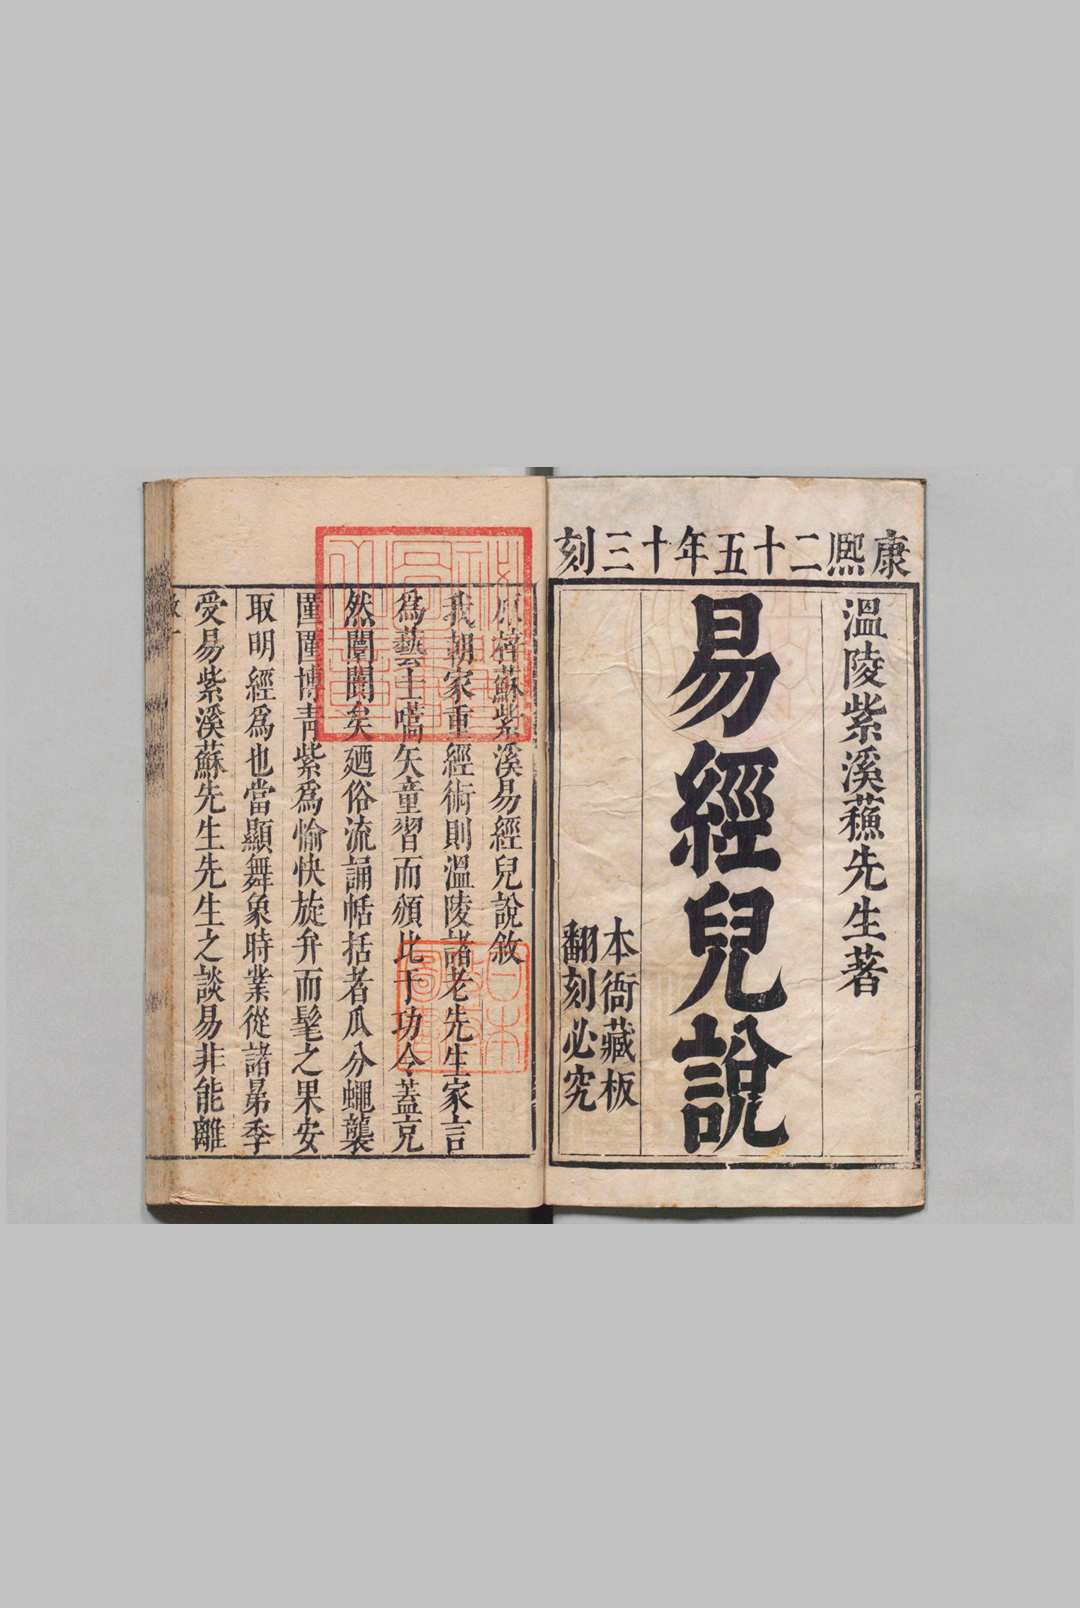 康熈二十五年十三刻
溫陵紫溪蘓先生著
易經兒說
本衙藏板
翻刻必究
原梓蘇紫溪易經兒說敘
我朝家重經術則溫陵諸老先生家言
爲藝士嚆矢童習而頒比于功令蓋亢
然闡闢矣廼俗流誦帖括者瓜分蠅襲
僅圖博靑紫爲愉快旋弁而髦之果安
取明經爲也當顯舞象時業從諸昴季
受易紫溪蘇先生先生之談易非能離
敘一